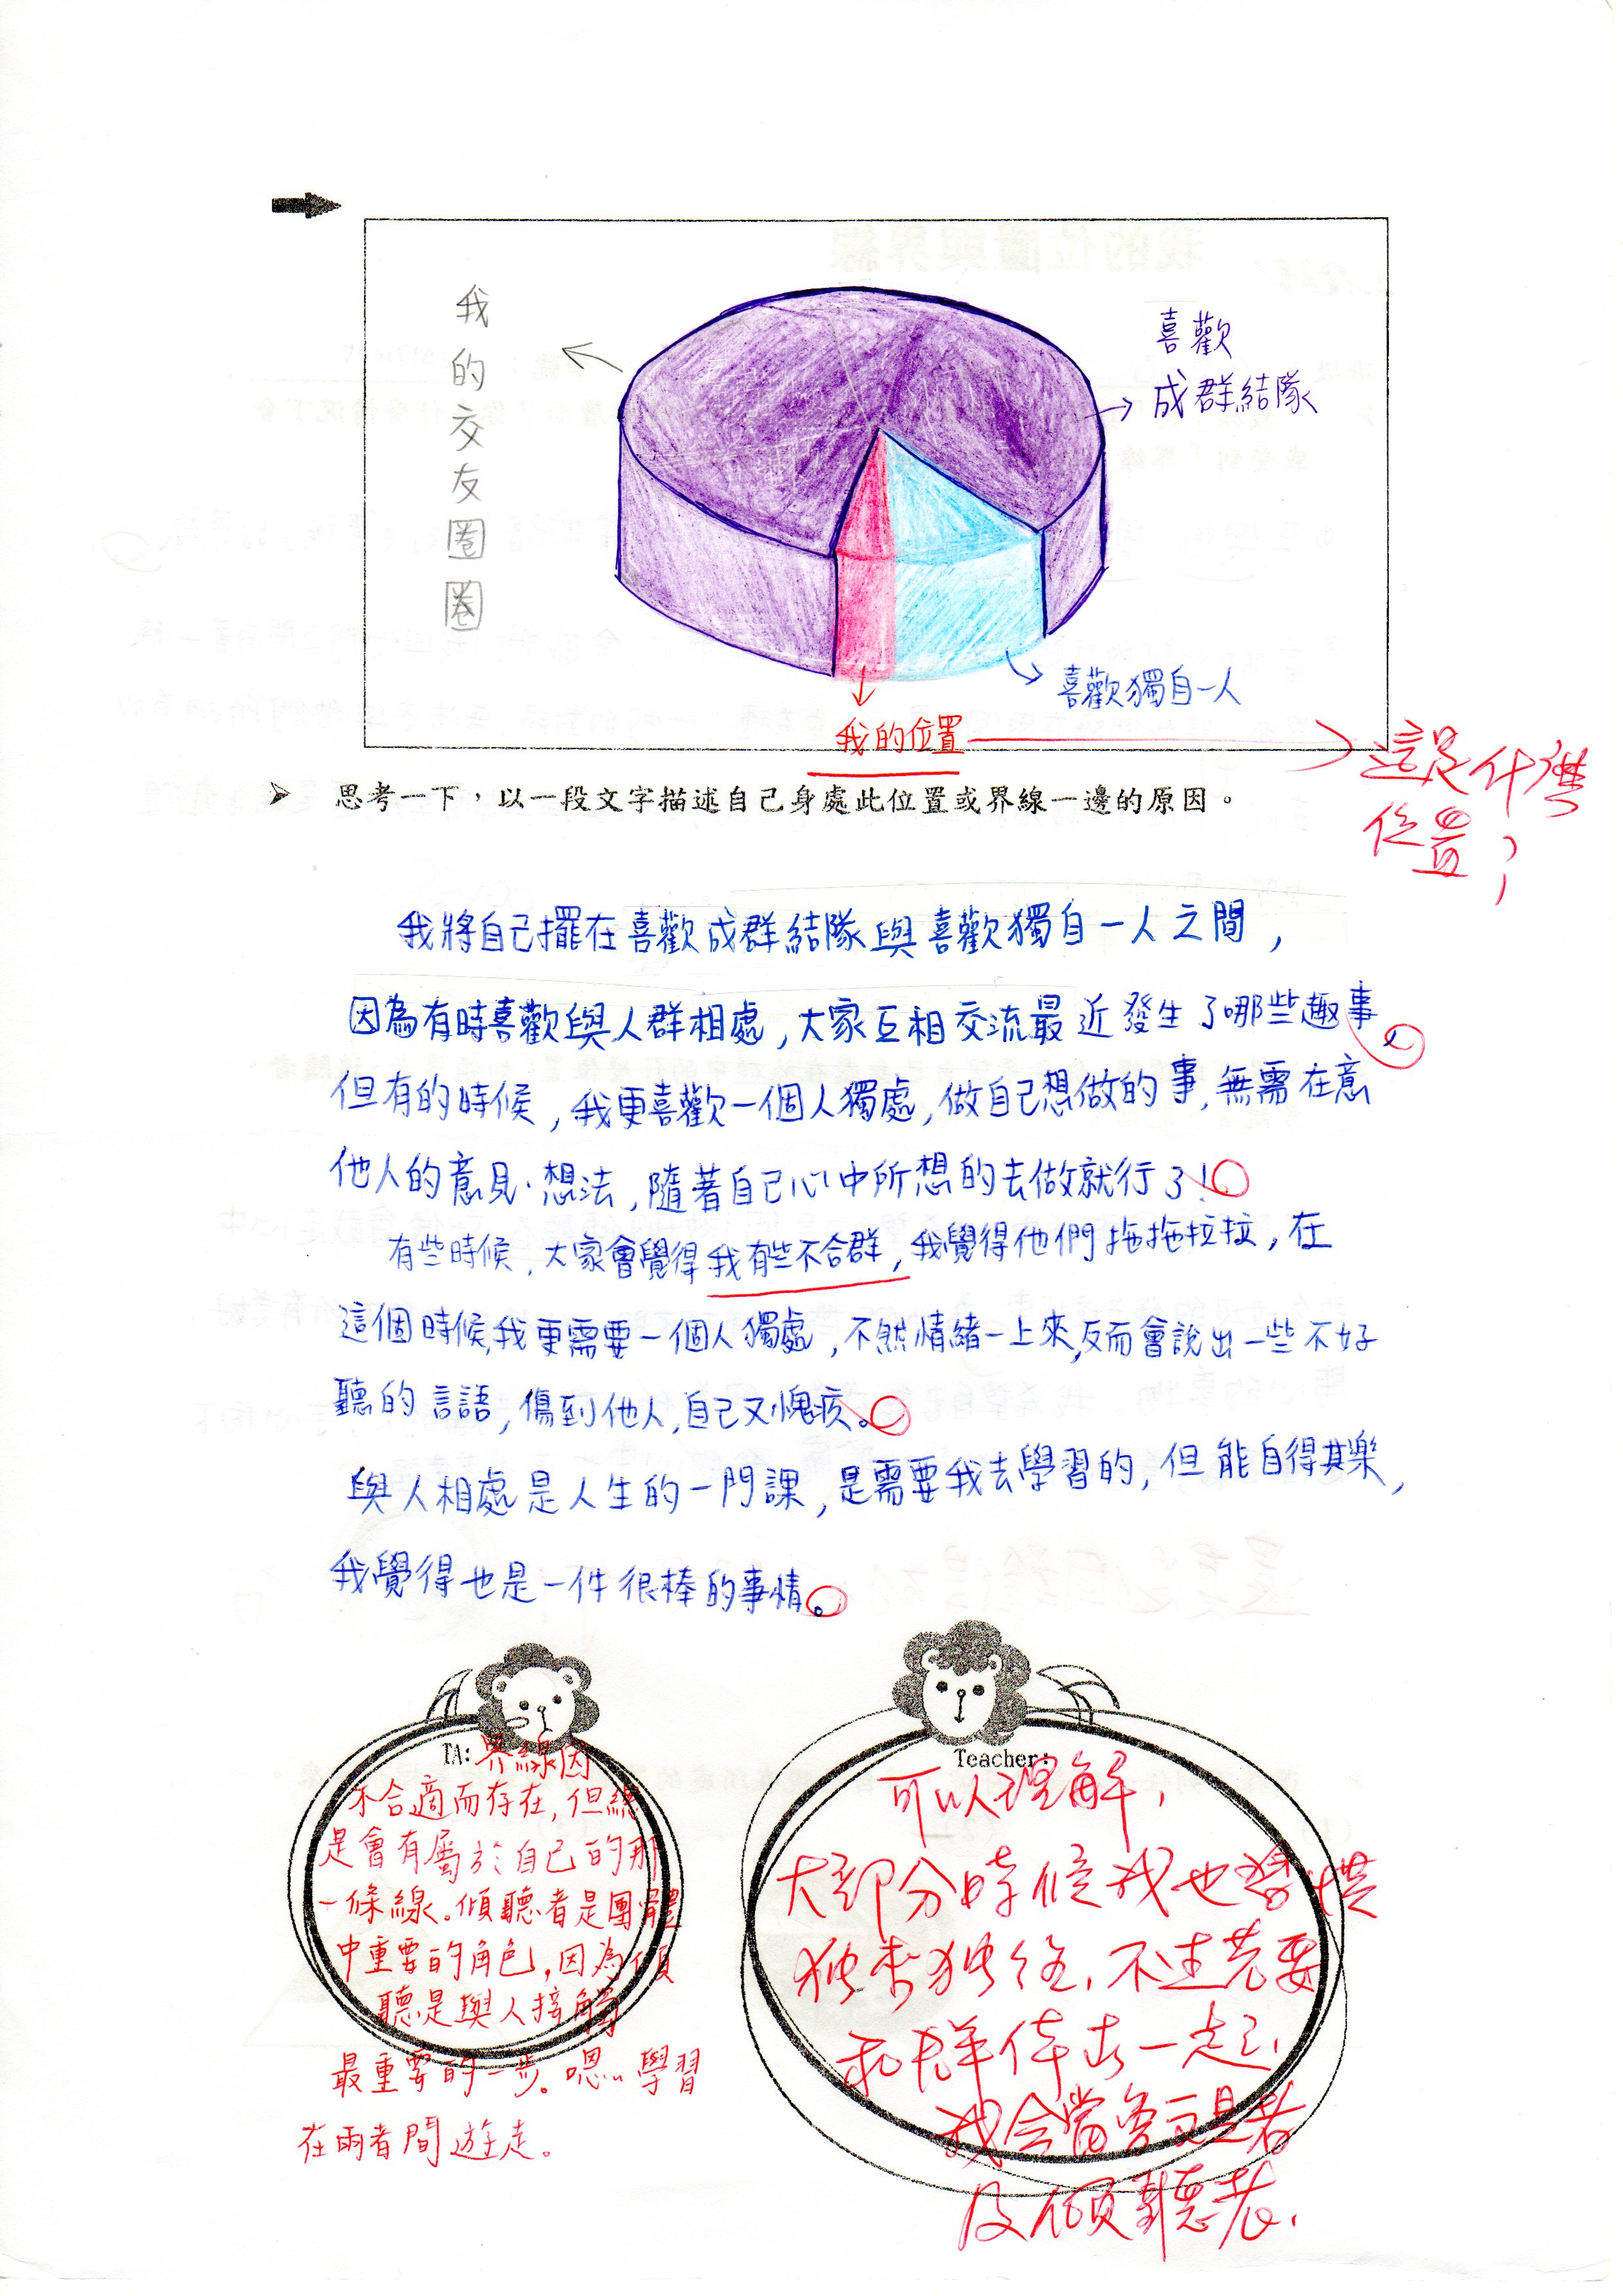 我的交友圈圈
喜歡
成群結隊
喜歡獨自一人
我的位置
這是什麼
位置?
思考一下，以一段文字描述自己身處此位置或界線一邊的原因。
我將自己擺在喜歡成群結隊與喜歡獨自一人之間，
因為有時喜歡與人群相處，大家互相交流最近發生了哪些趣事，
但有的時候，我更喜歡一個人獨處，做自己想做的事，無需在意
他人的意見、想法，隨著自己心中所想的去做就行了！
有些時候，大家會覺得我有些不合群，我覺得他們拖拖拉拉，在
這個時候，我更需要一個人獨處，不然情緒一上來，反而會說出一些不好
聽的言語，傷到他人，自己又愧疚。
與人相處是人生的一門課，是需要我去學習的，但能自得其樂，
我覺得也是一件很棒的事情。
TA:界線因
不合適而存在，但總
是會有屬於自己的那
一條線。傾聽者是團體
中重要的角色，因為傾
聽是與人接觸
最重要的一步。嗯…學習
在兩者間遊走。
Teacher:
可以理解，
大部分時候我也習慣
独來独往，不过若要
和群体在一起，
我会當參与者
及傾聽者.